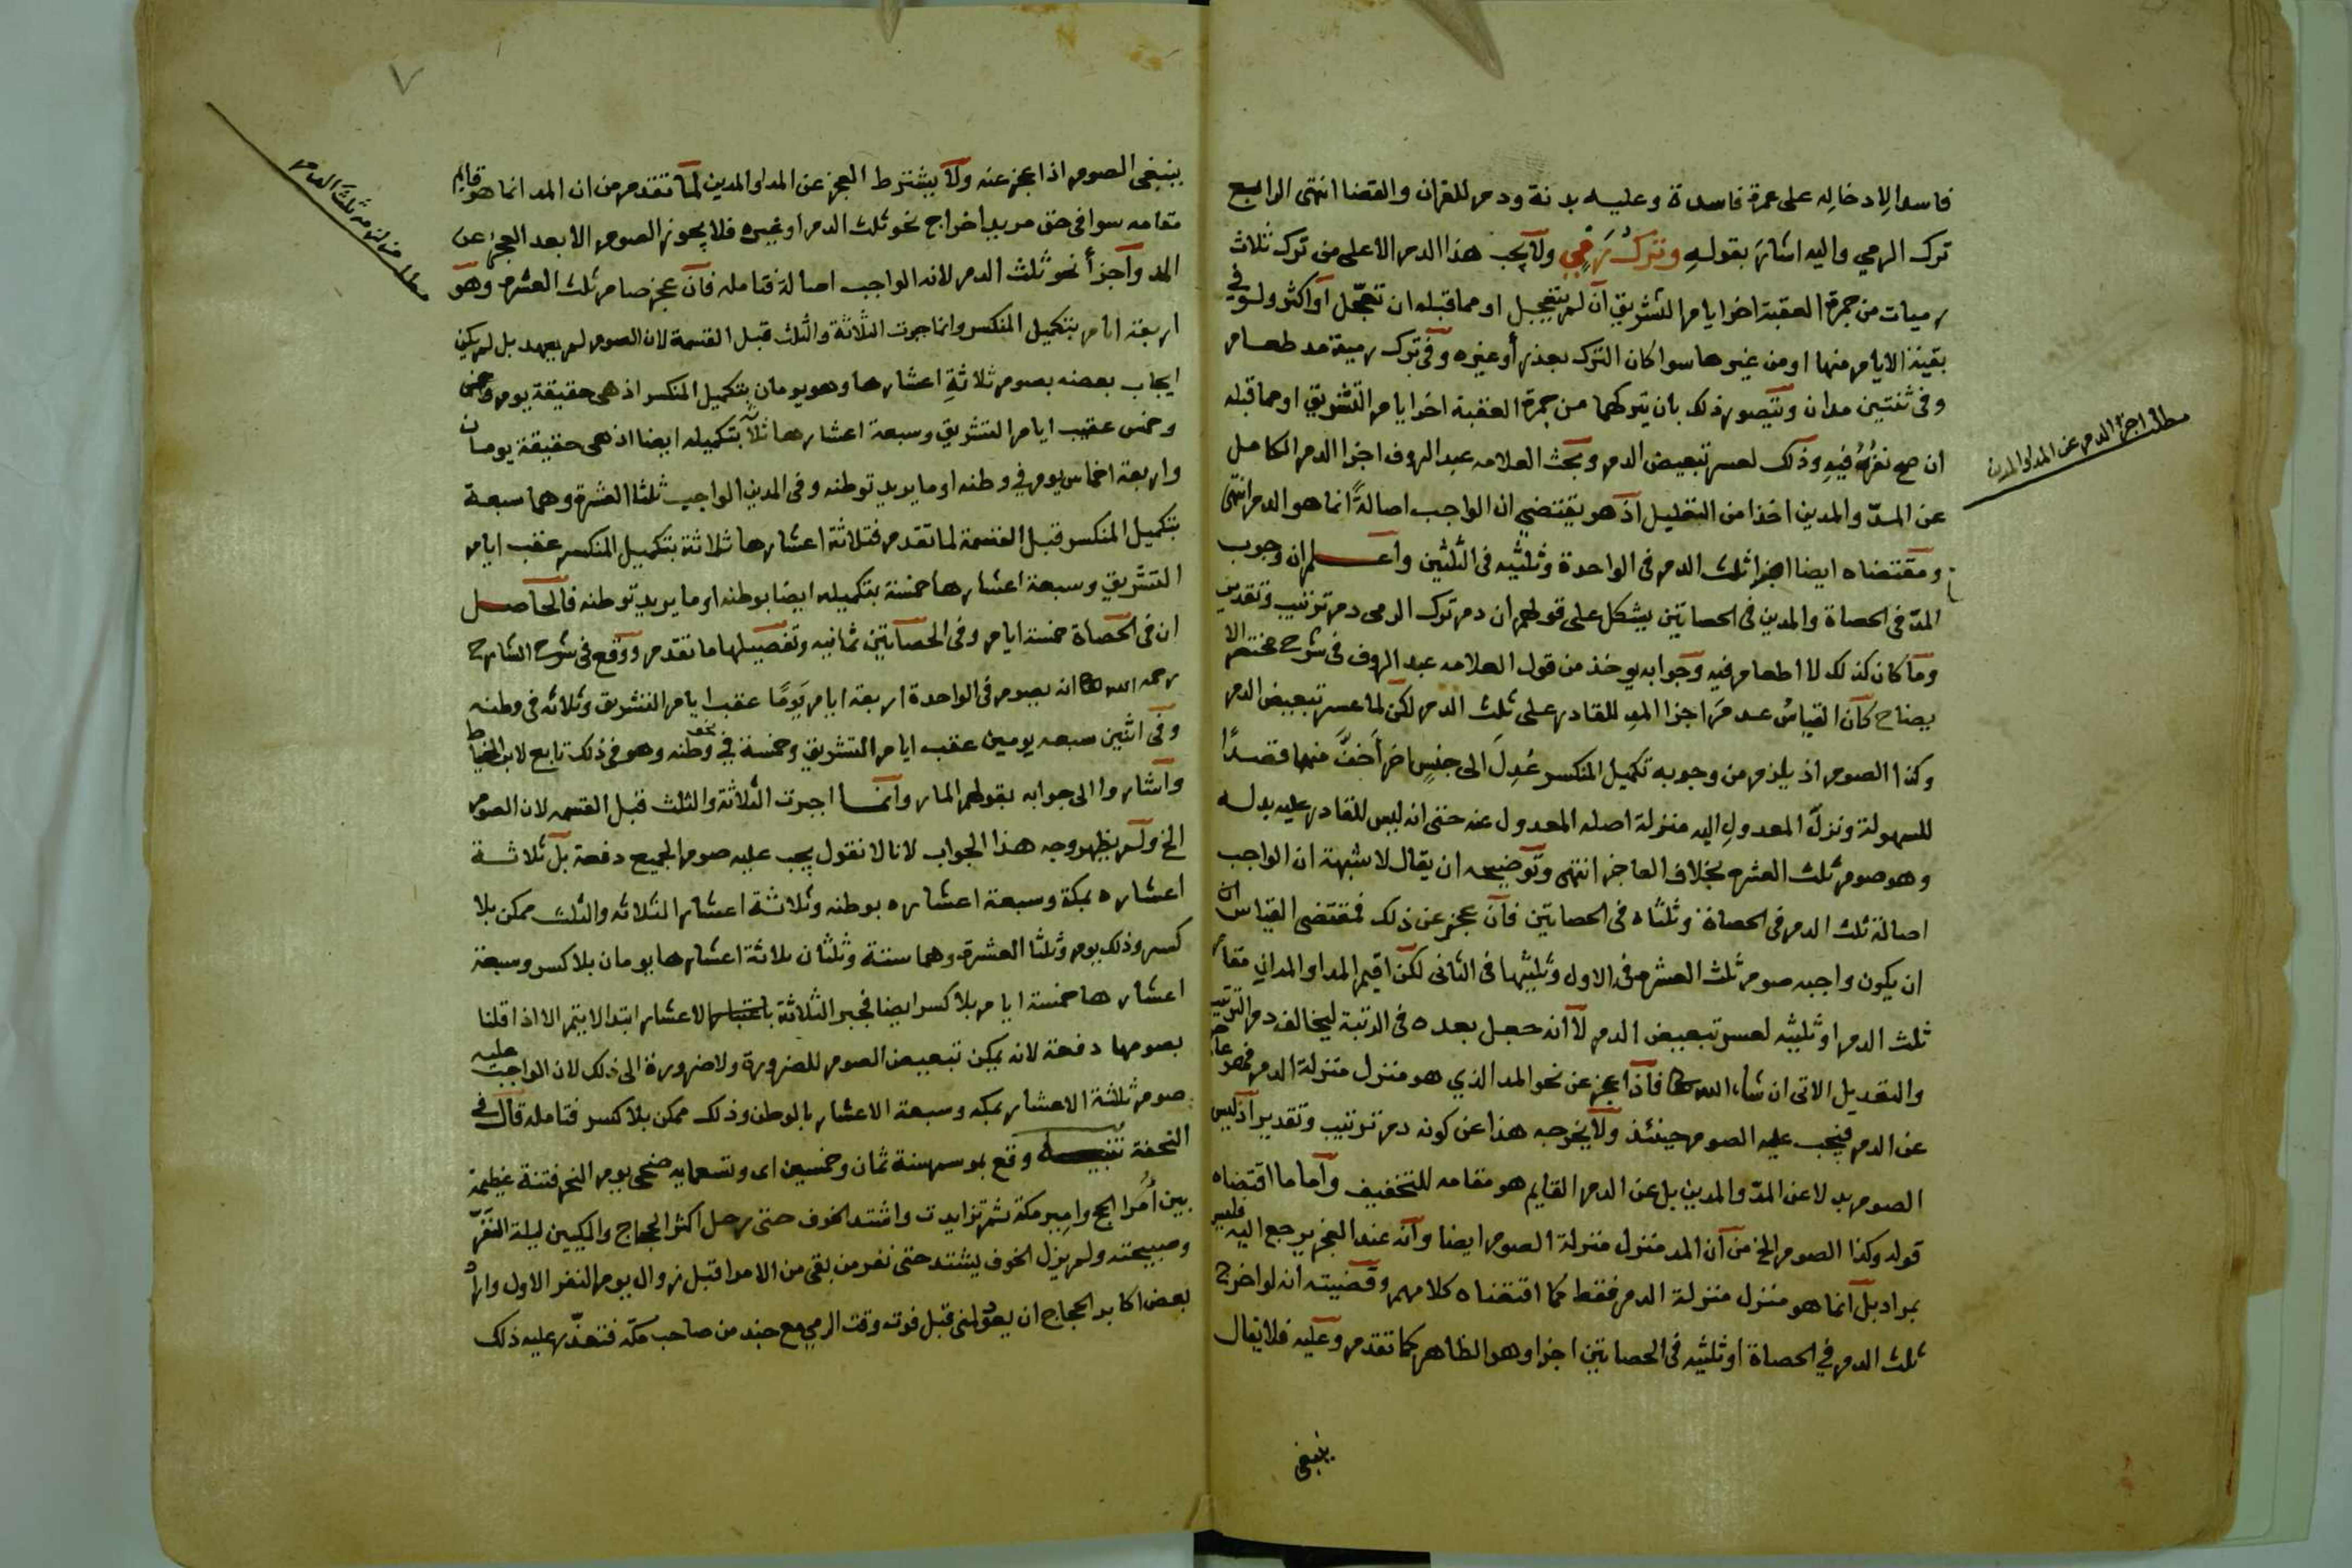 فاسدا لادخاله على عمرة فاسدة وعليه بدنة ودم للقران والقضا انتهى الرابع
ترك الرمي واليه اشار بقوله وترك رمي ولا يجب هذا الدم الا على من ترك ثلاث
رميات من جمرة العقبة اخر ايام التشريق ان لم يتعجل او مما قبله ان تعجل او اكثر ولو في
بقية الايام منها او من غيرها سوا كان الترك بعذر أو غيره وفي ترك رمية مد طعام
وفي ثنتين مدان ويتصور ذلك بان يتركها من جمرة العقبة اخر ايام التشريق او مما قبله
ان صح نفره فيه وذلك لعسر تبعيض الدم وبحث العلامه عبد الروف اجزا الدم الكامل
عن المد والمدين اخذا من التعليل اذ هو يقتضي ان الواجب اصالةً انما هو الدم انتهى
ومقتضاه ايضا اجزا ثلث الدم في الواحدة وثلثيه في الثلثين واعلم ان وجوب
المد في الحصاة والمدين في الحصاتين يشكل على قولهم ان دم ترك الرمى دم ترتيب وتقدير
وما كان كذلك لا اطعام فيه وجوابه يوخذ من قول العلامه عبد الروف في شرح مختصر الا
يضاح كان القياس عدم اجزا المد للقادر على ثلث الدم لكن لما عسر تبعيض الدم
وكذا الصوم اذ يلزم من وجوبه تكميل المنكسر عُدِلَ الى جنسٍ اخر أخف منهما قصدًا
للسهولة ونزل المعدول اليه منزلة اصله المعدول عنه حتى انه ليس للقادر عليه بدله
وهو صوم ثلث العشرة بخلاف العاجز انتهى وتوضيحه ان يقال لا شبهة ان الواجب
اصالة ثلث الدم في الحصاة وثلثاه في الحصاتين فان عجز عن ذلك فمقتضى القياس ان
ان يكون واجبه صوم ثلث العشرة في الاول وثلثيها في الثاني لكن اقيم المد او المدان مقام
ثلث الدم او ثلثيه لعسر تبعيض الدم لا انه جعل بعده في الرتبة ليخالف دم الترتيب
والتعديل الاتى ان شاء الله تعا فاذا عجز عن نحو المد الذي هو منزل منزلة الدم فهو عاجز
عن الدم فيجب عليه الصوم حينئذ ولا يخرجه هذا عن كونه دم ترتيب وتقدير اذ ليس
الصوم بدلا عن المد والمدين بل عن الدم القايم هو مقامه للتخفيف واما ما اقتضاه
قوله وكذا الصوم الخ من ان المد منزل منزلة الصوم ايضا وانه عند العجز يرجع اليه فليس
بمراد بل انما هو منزل منزلة الدم فقط كما اقتضاه كلامهم وقضيته انه لو اخرج
ثلث الدم في الحصاة او ثلثيه في الحصاتين اجزا وهو الظاهر كما تقدم وعليه فلا يقال
ينبغي
مطلب اجزا الدم عن المد والمدين
ينبغى الصوم اذا عجز عنه ولا يشترط العجز عن المد او المدين لما تقدم من ان المد انما هو قايم
مقامه سوا في حق مريد اخراج نحو ثلث الدم او غيره فلا يجوز الصوم الا بعد العجز عن
المد وأجزأ نحو ثلث الدم لانه الواجب اصالة فتامله فان عجز صام ثلث العشرة وهو
اربعة ايام بتكميل المنكسر وانما جبرت الثلاثة والثلث قبل القسمة لان الصوم لم يعهد بل لم يكن
ايجاب بعضه بصوم ثلاثة اعشارها وهو يومان بتكميل المنكسر اذ هي حقيقة يوم وخمس
وخمس عقب ايام التشريق وسبعة اعشارها ثلاثا بتكميله ايضا اذ هي حقيقة يومان
واربعة اخماس يوم في وطنه او ما يريد توطنه وفى المدين الواجب ثلثا العشرة وهما سبعة
بتكميل المنكسر قبل القسمة لما تقدم فثلاثة اعشارها ثلاثة بتكميل المنكسر عقب ايام
التشريق وسبعة اعشارها خمسة بتكميله ايضا بوطنه او ما يريد توطنه فالحاصل
ان في الحصاة خمسة ايام وفى الحصاتين ثمانيه وتفصيلها ما تقدم ووقع في شرح الشارح
رحمه الله تعا انه يصوم في الواحدة اربعة ايام يومًا عقب ايام التشريق وثلاثه في وطنه
وفى اثنين سبعه يومين عقب ايام التشريق وخمسة في وطنه وهو في ذلك تابع لابن الخياط
واشاروا الى جوابه بقولهم المار وانما اجبرت الثلاثة والثلث قبل القسمه لان الصوم
الخ ولم يظهر وجه هذا الجواب لانا لا نقول يجب عليه صوم الجميع دفعة بل ثلاثة
اعشاره بمكة وسبعة اعشاره بوطنه وثلاثة اعشار الثلاثه والثلث ممكن بلا
كسر وذلك يوم وثلثا العشرة وهما ستة وثلثان ثلاثة اعشارها يومان بلا كسر وسبعة
اعشارها خمسة ايام بلا كسر ايضا فجبر الثلاثة باعتبار الاعشار ابتدا لا يتم الا اذا قلنا
بصومها دفعة لانه يمكن تبعيض الصوم للضرورة ولا ضرورة الى ذلك لان الواجب عليه
صوم ثلثة الاعشار بمكه وسبعة الاعشار بالوطن وذلك ممكن بلا كسر فتامله قال في
التحفة تنبيه وقع بموسم سنة ثمان وخمسين اى وتسعمايه ضحى يوم النحر فتنة عظيمة
بين أمرا الحج وامير مكة ثم تزايدت واشتد الخوف حتى رحل اكثر الحجاج والمكيين ليلة النفر
وصبيحته ولم يزل الخوف يشتد حتى نفر من بقي من الامرا قبل زوال يوم النفر الاول واراد
بعض اكابر الحجاج ان يعود لمنى قبل فوته وقت الرمي مع جند من صاحب مكه فتعذر عليه ذلك